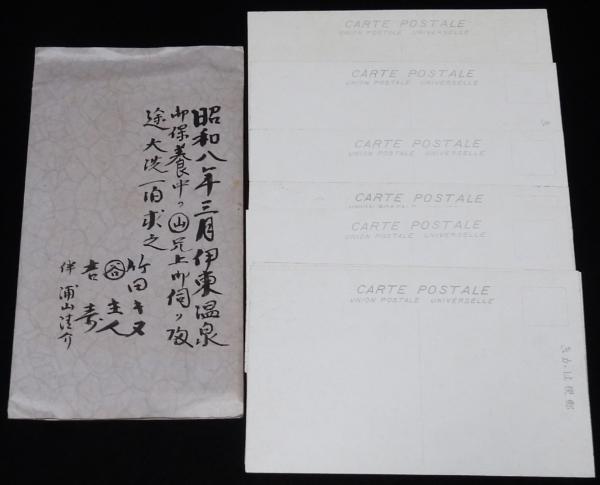 昭和八年三月伊東温泉
御保養中ノ㊤兄上御伺り帰
途大洗一泊求之
竹田キヌ
主人
吉寿
伴 浦山清介
CARTE POSTALE
UNION POSTALE UNIVERSELLE
CARTE POSTALE
UNION POSTALE UNIVERSELLE
CARTE POSTALE
UNION POSTALE UNIVERSELLE
CARTE POSTALE
CARTE POSTALE
UNION POSTALE UNIVERSELLE
CARTE POSTALE
UNION POSTALE UNIVERSELLE
きかは便郵